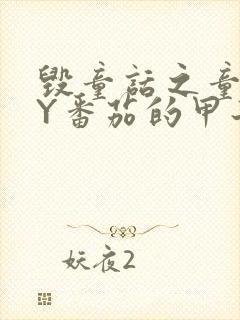 毁童话之童
Y番茄的甲
妖夜2